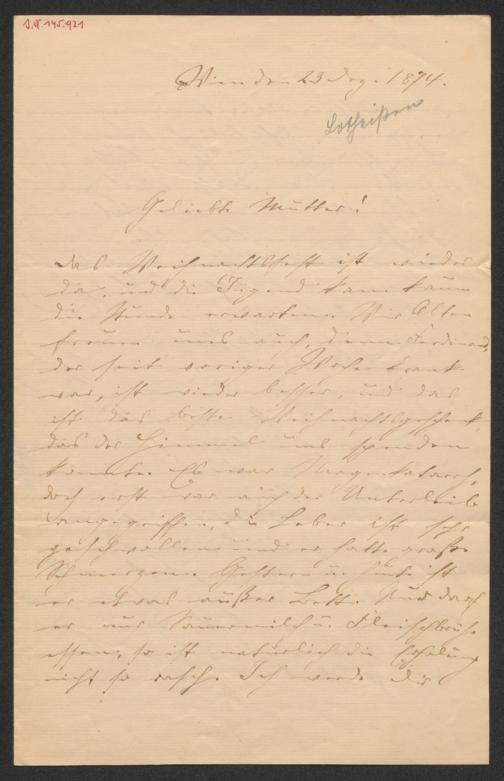 J.N. 145.921
Wien den 23 Dez. 1874.
Lotheißen
Geliebte Mutter!
das Weihnachtsfest ist wieder
da, und die Jugend kann kaum
die Stunde erwarten. Wir Alten
freuen uns auch, denn Ferdinand,
der seit voriger Woche krank
war, ist wieder besser, und das
ist das beste Weihnachtsgeschenk
das der Himmel uns spenden
konnte. Es war Magenkatarrh,
doch erst war auch der Unterleib
angegriffen, die Leber ist sehr
geschwollen und er hatte große
Schmerzen. Gestern u. heute ist
er etwas außer Bett. Und darf
er nur Sauermilch u. Fleischbrühe
essen, so ist natürlich die Erholung
nicht so rasch. Ich werde dir